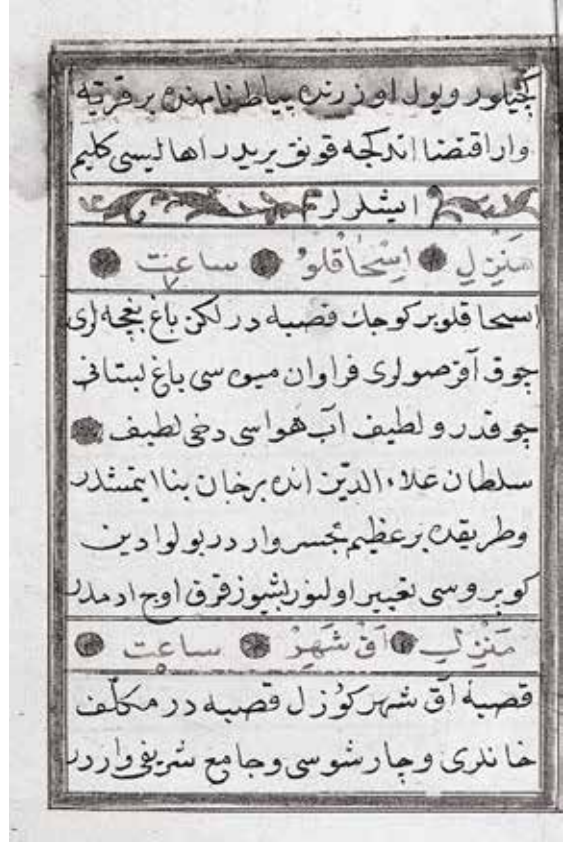 كچيلور ويول اوزرنده بياط نامنده بر قريه
وار اقتضا اند كجه قونق يريدر اهاليسى كليم
ايشلرلر
منزل اسحاقلو ساعت ٧
اسحاقلو بر كوچك قصبه در لكن باغ بغچه لرى
چوق آقر صولرى فراوان ميوه سى باغ بستانى
چوقدر و لطيف آب هواسى دخى لطيف
سلطان علاء الدين انده بر خان بنا ايتمشدر
وطريقده بر عظيم جسر واردر بولوادين
كوپروسى تعبير اولنور بشيوز قرق اوچ ادمدر
منزل آق شهر ساعت ٥
قصبۀ آق شهر كوزل قصبه در مكلف
خانلرى وچارشوسى وجامع شريفى واردر